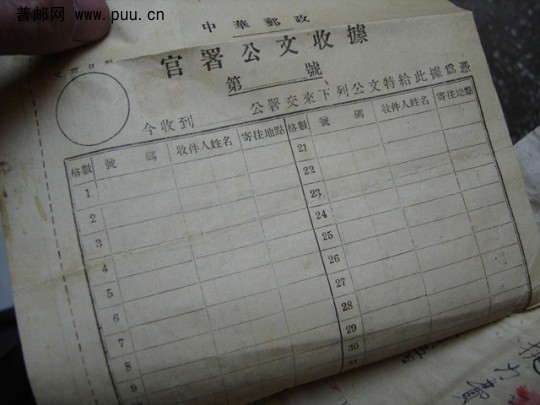 普邮网 www.puu.cn
中華郵政
官署公文收據
第 號
今收到 公署交來下列公文特給此據爲憑
格數 號碼 收件人姓名 寄往地點 格數 號碼 收件人姓名 寄往地點
1 21
2 22
3 23
4 24
5 25
6 26
7 27
8 28
9 29
30